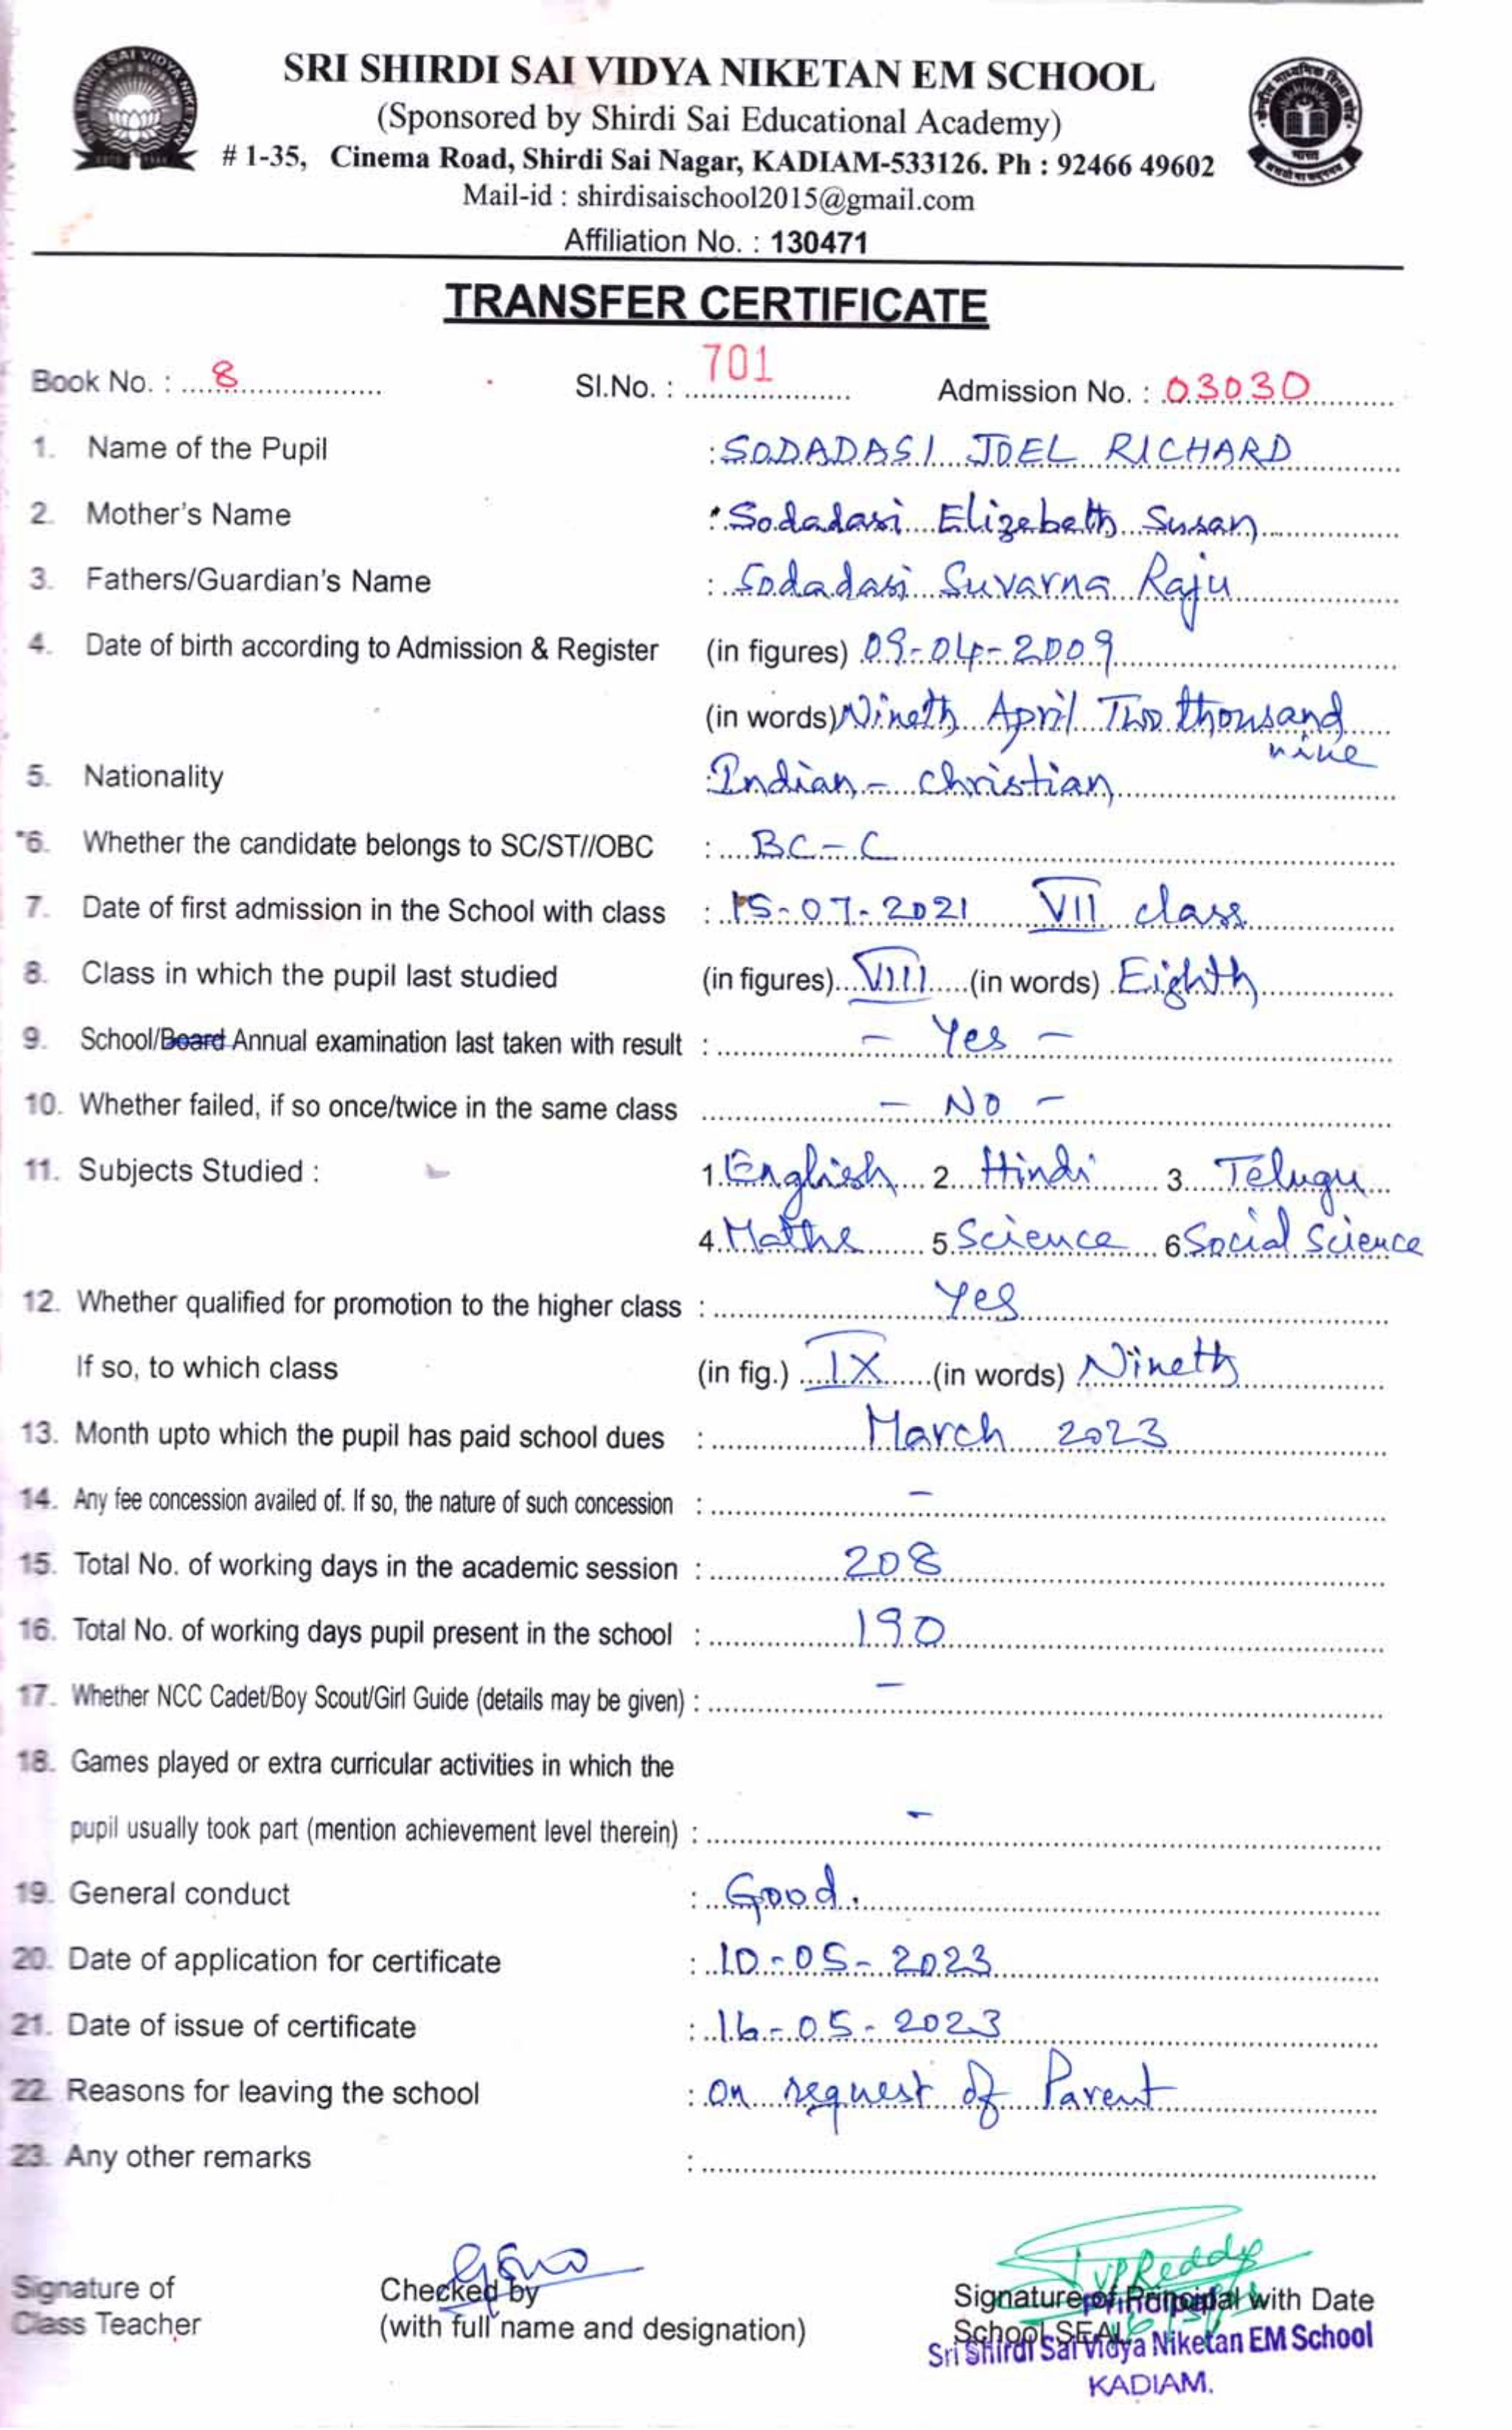 SRI SHIRDI SAI VIDYA NIKETAN EM SCHOOL
(Sponsored by Shirdi Sai Educational Academy)
# 1-35, Cinema Road, Shirdi Sai Nagar, KADIAM-533126. Ph : 92466 49602
Mail-id : shirdisaischool2015@gmail.com
Affiliation No. : 130471
TRANSFER CERTIFICATE
Book No. : 8 Sl.No. : 701 Admission No. : 03030
1. Name of the Pupil : SODADASI JOEL RICHARD
2. Mother's Name : Sodadasi Elizebeth Susan
3. Fathers/Guardian's Name : Sodadasi Suvarna Raju
4. Date of birth according to Admission & Register (in figures) 09-04-2009
(in words) Nineth April Two thousand
nine
5. Nationality : Indian - christian
*6. Whether the candidate belongs to SC/ST//OBC : BC-C
7. Date of first admission in the School with class : 15-07-2021 VII class
8. Class in which the pupil last studied (in figures) VIII (in words) Eighth
9. School/Board Annual examination last taken with result : - Yes -
10. Whether failed, if so once/twice in the same class - NO -
11. Subjects Studied : 1. English 2. Hindi 3. Telugu
4. Maths 5. Science 6. Social Science
12. Whether qualified for promotion to the higher class : Yes
If so, to which class (in fig.) IX (in words) Nineth
13. Month upto which the pupil has paid school dues : March 2023
14. Any fee concession availed of. If so, the nature of such concession : -
15. Total No. of working days in the academic session : 208
16. Total No. of working days pupil present in the school : 190
17. Whether NCC Cadet/Boy Scout/Girl Guide (details may be given) : -
18. Games played or extra curricular activities in which the
pupil usually took part (mention achievement level therein) : -
19. General conduct : Good.
20. Date of application for certificate : 10-05-2023
21. Date of issue of certificate : 16-05-2023
22. Reasons for leaving the school : on request of Parent
23. Any other remarks :
TVP Reddy
Signature of Checked by Signature of Principal with Date
Class Teacher (with full name and designation) School SEAL
Principal
Sri Shirdi Sai Vidya Niketan EM School
KADIAM.